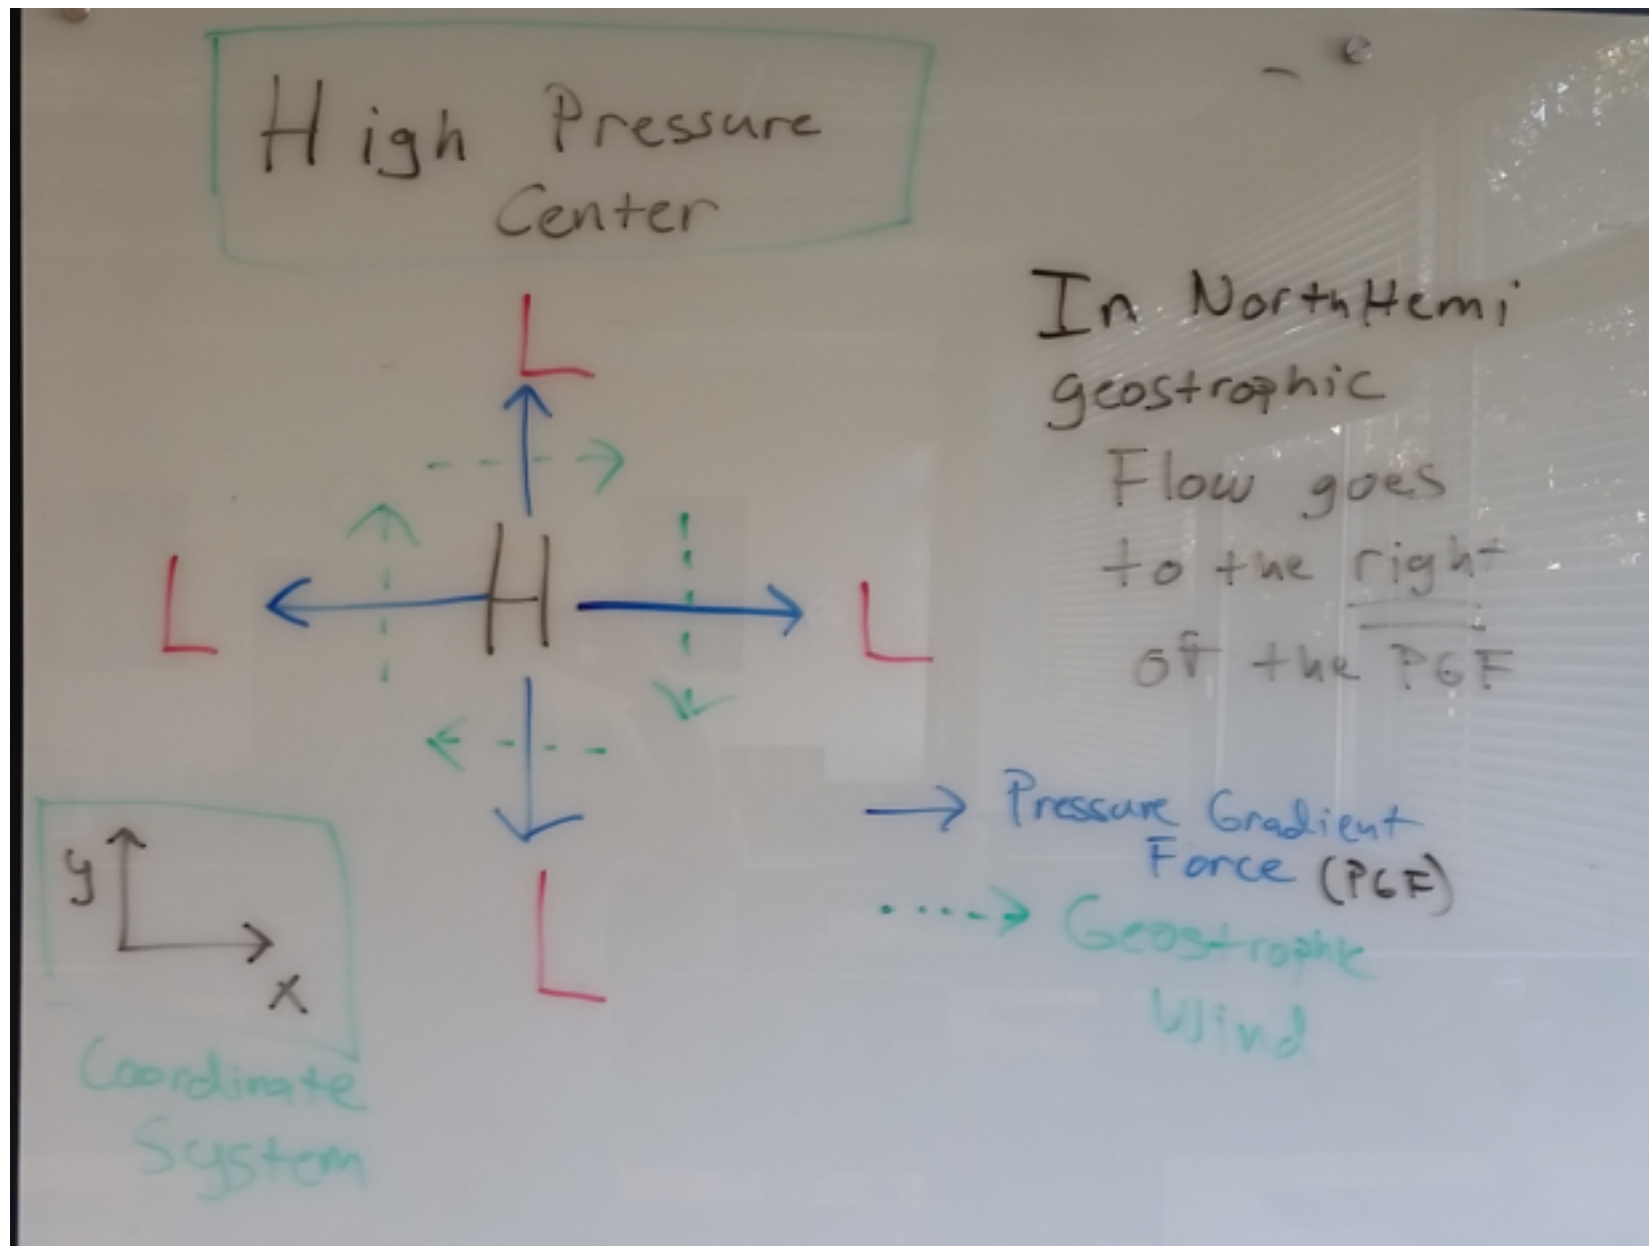 High Pressure
Center
L
L
H
L
L
In NorthHemi
geostrophic
Flow goes
to the right
of the PGF
Pressure Gradient
Force (PGF)
Geostrophic
Wind
y
x
Coordinate
System